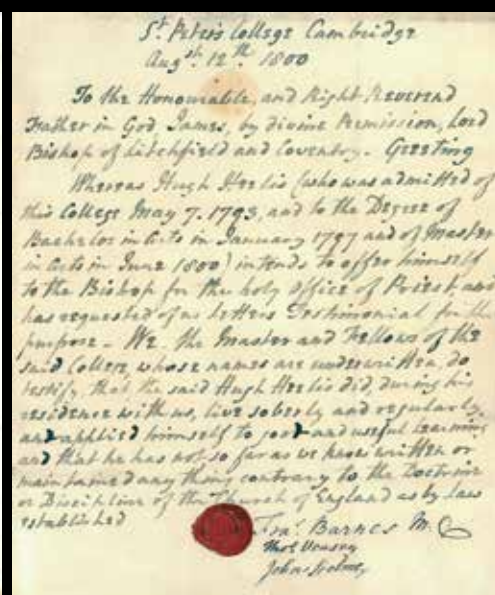 St. Peter's College Cambridge
Augst. 12th. 1800
To the Honourable, and Right Reverend
Father in God, James, by divine Permission, Lord
Bishop of Litchfield and Coventry. Greeting
Whereas Hugh Heelis (who was admitted of
this College May 7. 1793, and to the Degree of
Bachelor in Arts in January 1797 and of Master
in Arts in June 1800) intends to offer himself
to the Bishop for the holy office of Priest and
has requested of us letters Testimonial for the
purpose – We the Master and Fellows of the
said College, whose names are underwritten, do
testify, that the said Hugh Heelis did, during his
residence with us, live soberly and regularly,
and applied himself to good and useful learning
and that he has not so far as we know written or
maintained any thing contrary to the Doctrine
or Discipline of the Church of England as by law
established
Fras. Barnes M.
Thos. Veasey
John